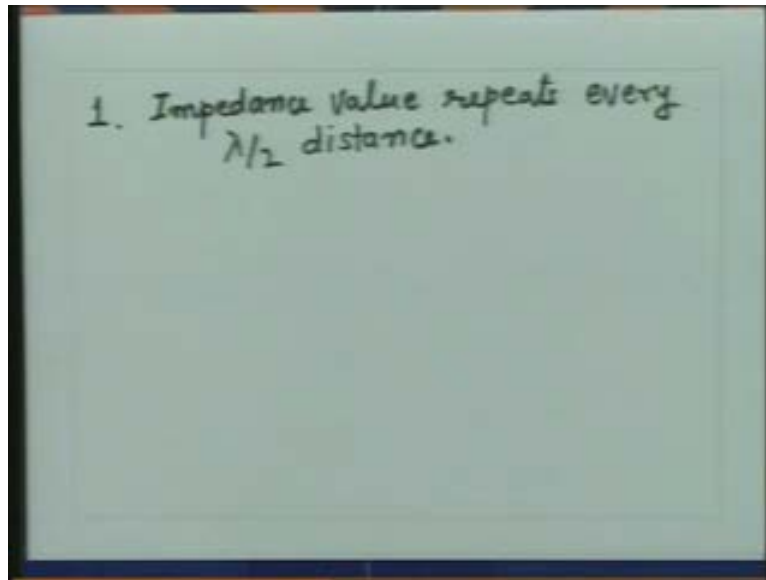 1. Impedance value repeats every
λ/2 distance.